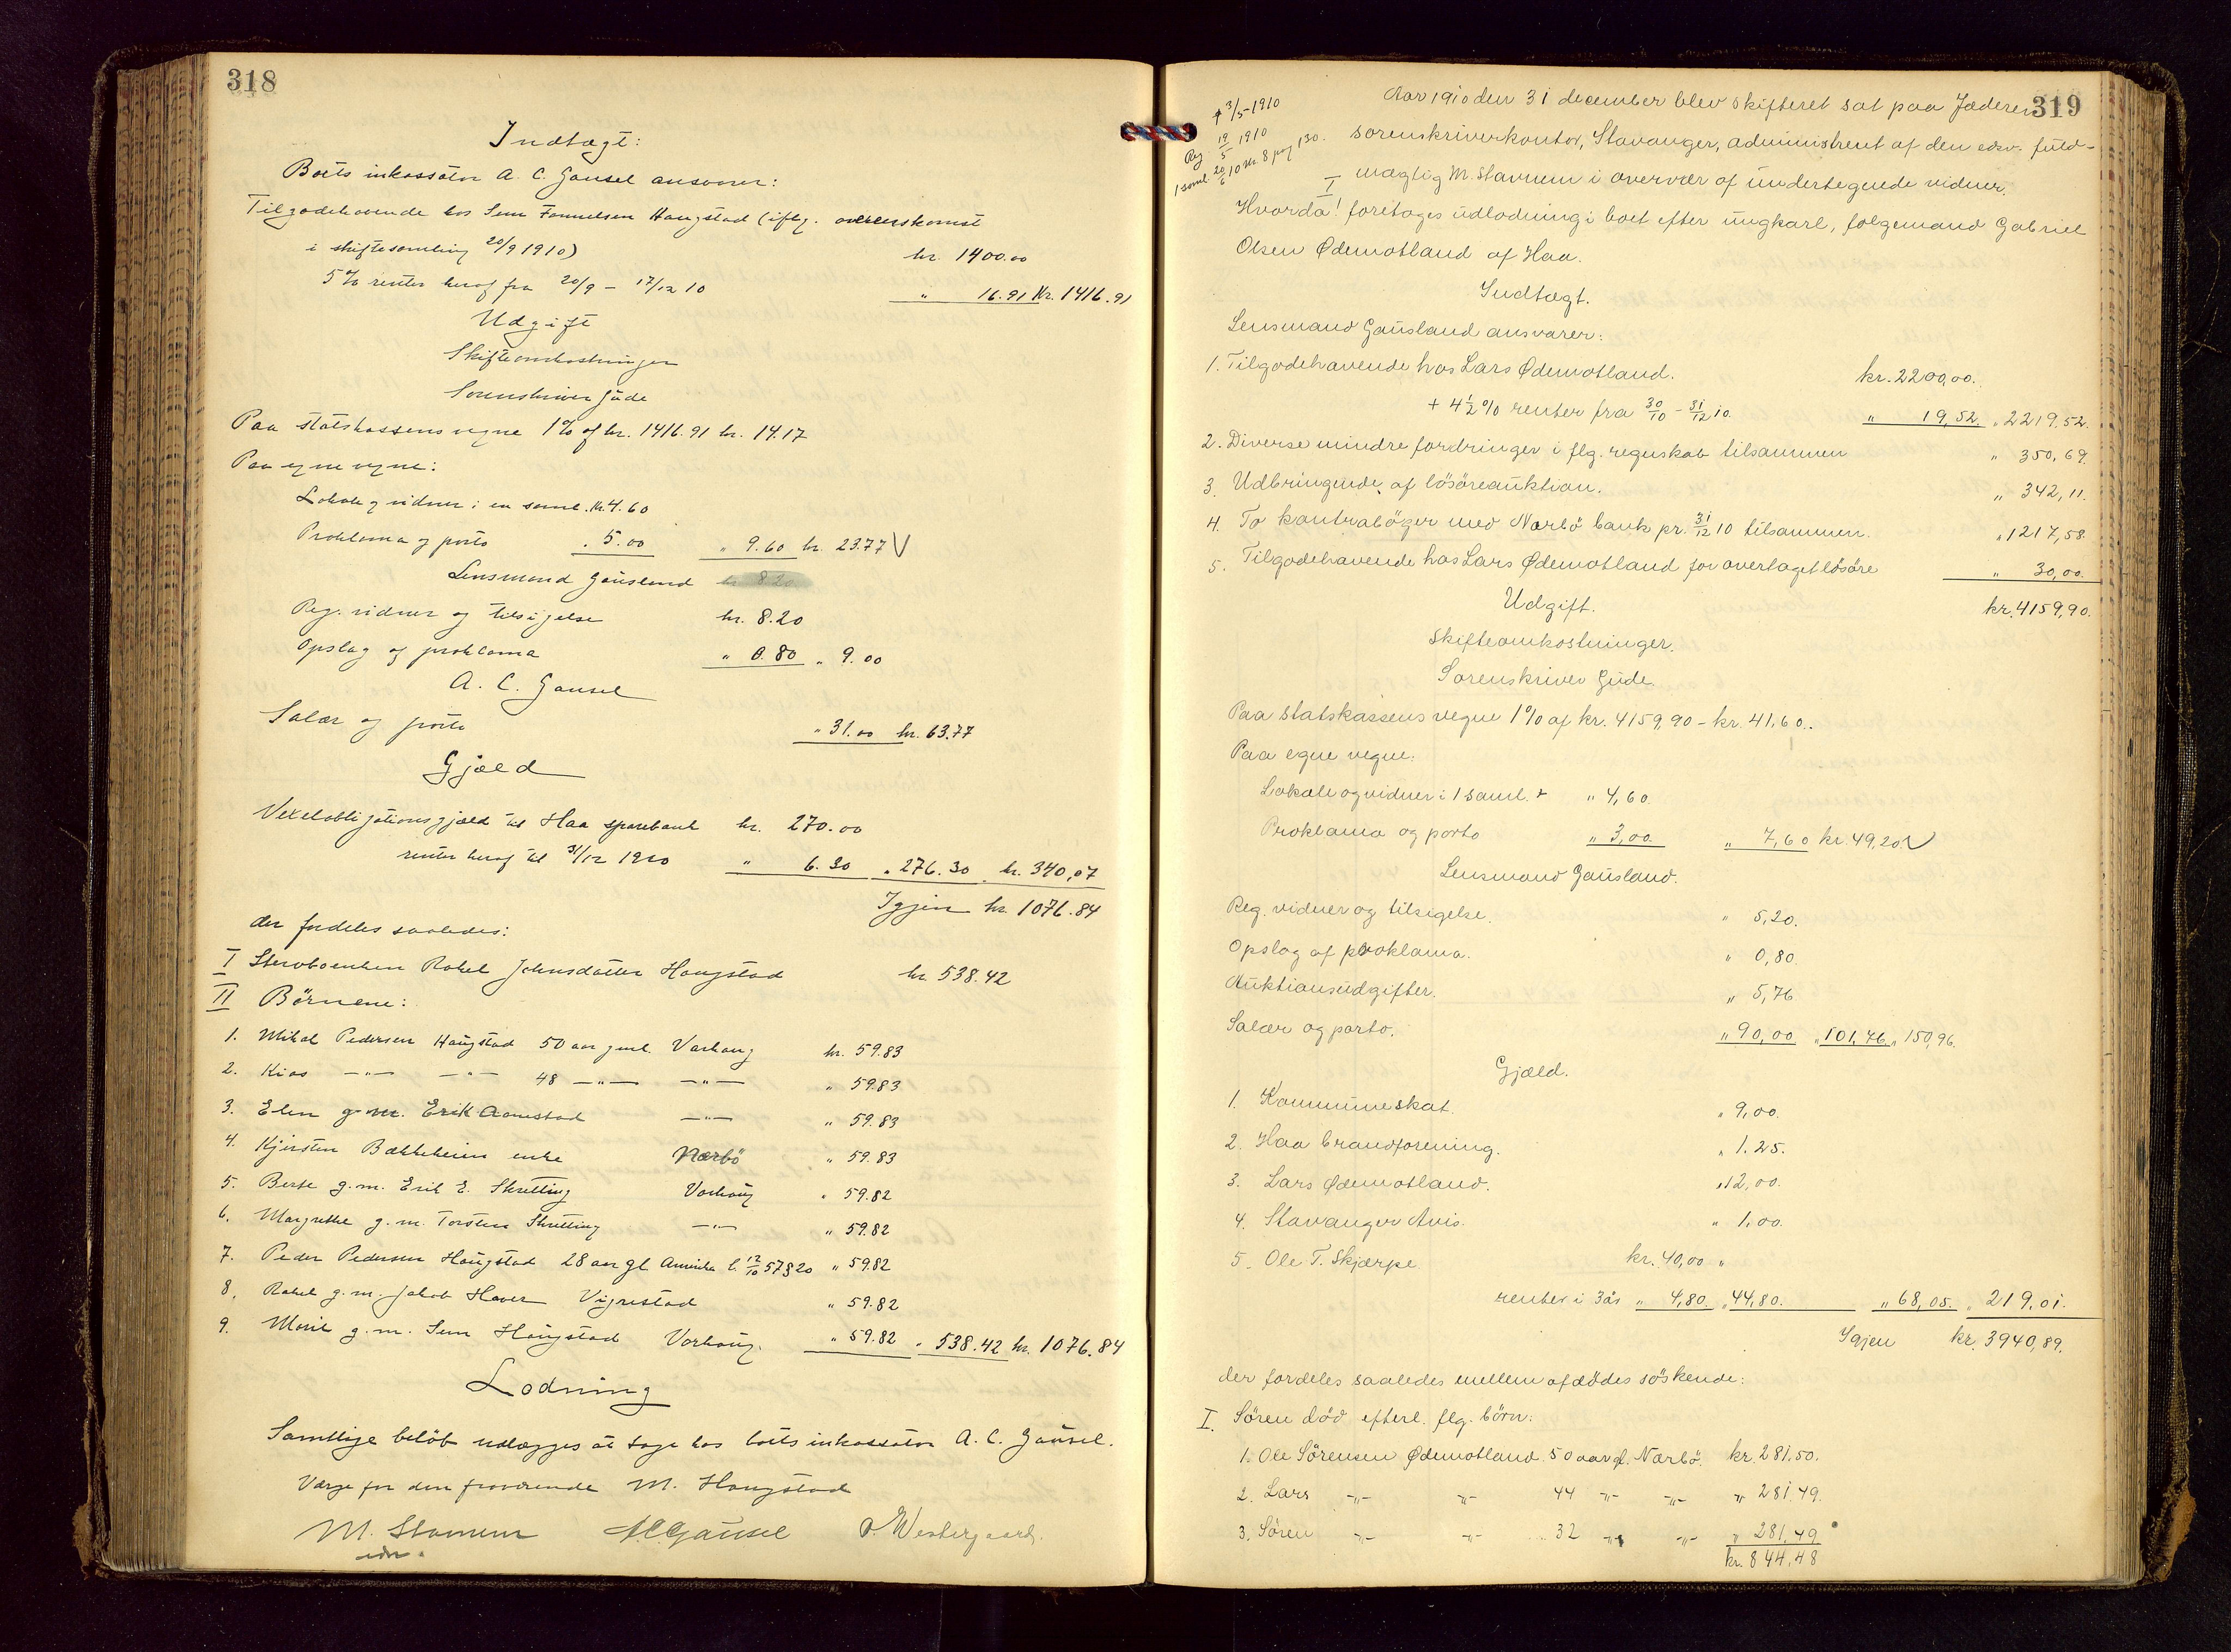 318
Indtægt:
Boets inkassator A. C. Gausel ansvarer:
Tilgodehavende hos Sem Haugstad (iflg. overenskomst
i skiftesamling 20/9 1910) kr. 1400.00
5% renter herof fra 20/9 - 17/12 10 " 16.91 Kr. 1416.91
Udgift
Skifteomkostninger
Sorenskriver Gude
Paa statskassens vegne 1% af kr. 1416.91 kr. 14.17
Paa egne vegne:
Lokale og vidner i en saml. Kr. 4.60
Proklama og porto " 5.00 " 9.60 kr. 23.77 V
Lensmand Gausland kr 8.20
Reg. vidner og tilsigelse kr. 8.20
Opslag af proklama " 0.80 " 9.00
A. C. Gausel
Salær og porto " 31.00 kr. 63.77
Gjæld
Vexelobligationsgjæld til Haa sparebank kr. 270.00
renter herof til 31/12 1910 " 6.30 " 276.30 kr. 340,07
Igjen kr. 1076.84
der fordeles saaledes:
I Stervboenken Rakel Johnsdatter Haugstad kr 538.42
II Børnene:
1. Mikal Pedersen Haugstad 50 aar gml. Varhaug kr. 59.83
2. -"- -"- 48 -"- -"- " 59.83
3. Elen g. m. Erik Aanestad -"- " 59.83
4. Kjirsten Bækkeheien enke Nærbö " 59.83
5. Berte g. m. Erik E. Skretting Varhaug " 59.82
6. Margrethe g. m. Torsten Skretting -"- " 59.82
7. Peder Pedersen Haugstad 28 aar gl Amerika l. 12/10 57 § 20 " 59.82
8. Rakel g. m. Jakob Haver Vigrestad " 59.82
9. Marie g. m. Sem Haugstad Varhaug. " 59.82 " 538.42 kr. 1076.84
Lodning
Samtlige beløb udlægges at tage hos boets inkassator A. C. Gausel.
Værge for den fraværende M. Haugstad
M. Stavnem A C Gausel O. Westergaard.
edsv.
319
† 3/5-1910
Reg 19/5 1910
1 saml. 20/6 10 skr. 8 pag 130.
Aar 1910 den 31 december blev skifteret sat paa Jæderen
sorenskriverkontor, Stavanger, administreret af den edsv. fuld-
mægtig M. Stavnem i overvær af undertegnede vidner.
I
Hvorda! foretages udlodning i boet efter ungkarl, følgemand Gabriel
Olsen Ødemotland af Haa.
Indtægt.
Lensmand Gausland ansvarer:
1. Tilgodehavende hos Lars Ødemotland. kr. 2200,00.
+ 4 1/2 % renter fra 30/10 - 31/12 10. " 19,52. " 2219,52.
2. Diverse mindre fordringer i flg. regnskab tilsammen " 350,69.
3. Udbringende af lösöreauktion. " 342,11.
4. To kontraböger med Nærbö bank pr. 31/12 10 tilsammen. " 1217,58.
5. Tilgodehavende hos Lars Ødemotland for overtaget lösöre " 30,00.
Udgift. kr. 4159,90.
Skifteomkostninger.
Sorenskriver Gude.
Paa statskassens vegne 1% af kr. 4159,90 - kr. 41,60.
Paa egne vegne:
Lokale og vidner i 1 saml. + " 4,60.
Proklama og porto " 3,00. " 7,60 kr. 49,20. V
Lensmand Gausland.
Reg. vidner og tilsigelse. " 5,20.
Opslag af proklama. " 0,80.
Auktionsudgifter. " 5,76
Salær og porto. " 90,00 " 101,76. " 150,96.
Gjæld.
1. Kommuneskat. " 9,00.
2. Haa brandforening. " 1.25.
3. Lars Ødemotland. " 12,00.
4. Stavanger Avis. " 1,00.
5. Ole T. Skjærpe kr. 40,00 "
renter i 3 år " 4,80. " 44,80. " 68,05. " 219,01.
Igjen kr. 3940,89.
der fordeles saaledes mellem afdödes söskende:
I. Sören död efterl. flg. börn:
1. Ole Sörensen Ødemotland. 50 aar gl. Nærbö. kr. 281,50.
2. Lars -"- -"- 44 -"- -"- " 281,49.
3. Sören -"- -"- 32 -"- -"- " 281,49
kr. 844,48